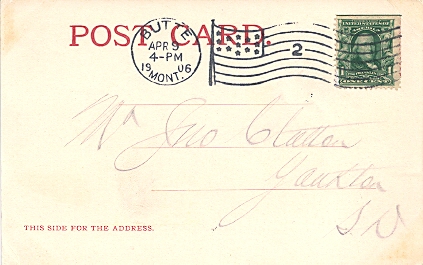 POST CARD.
BUTTE
APR 9
4-PM
1906
MONT.
2
UNITED STATES OF AMERICA
1 ONE CENT 1
Mr Jno Clatton
Yankton
S.D
THIS SIDE FOR THE ADDRESS.